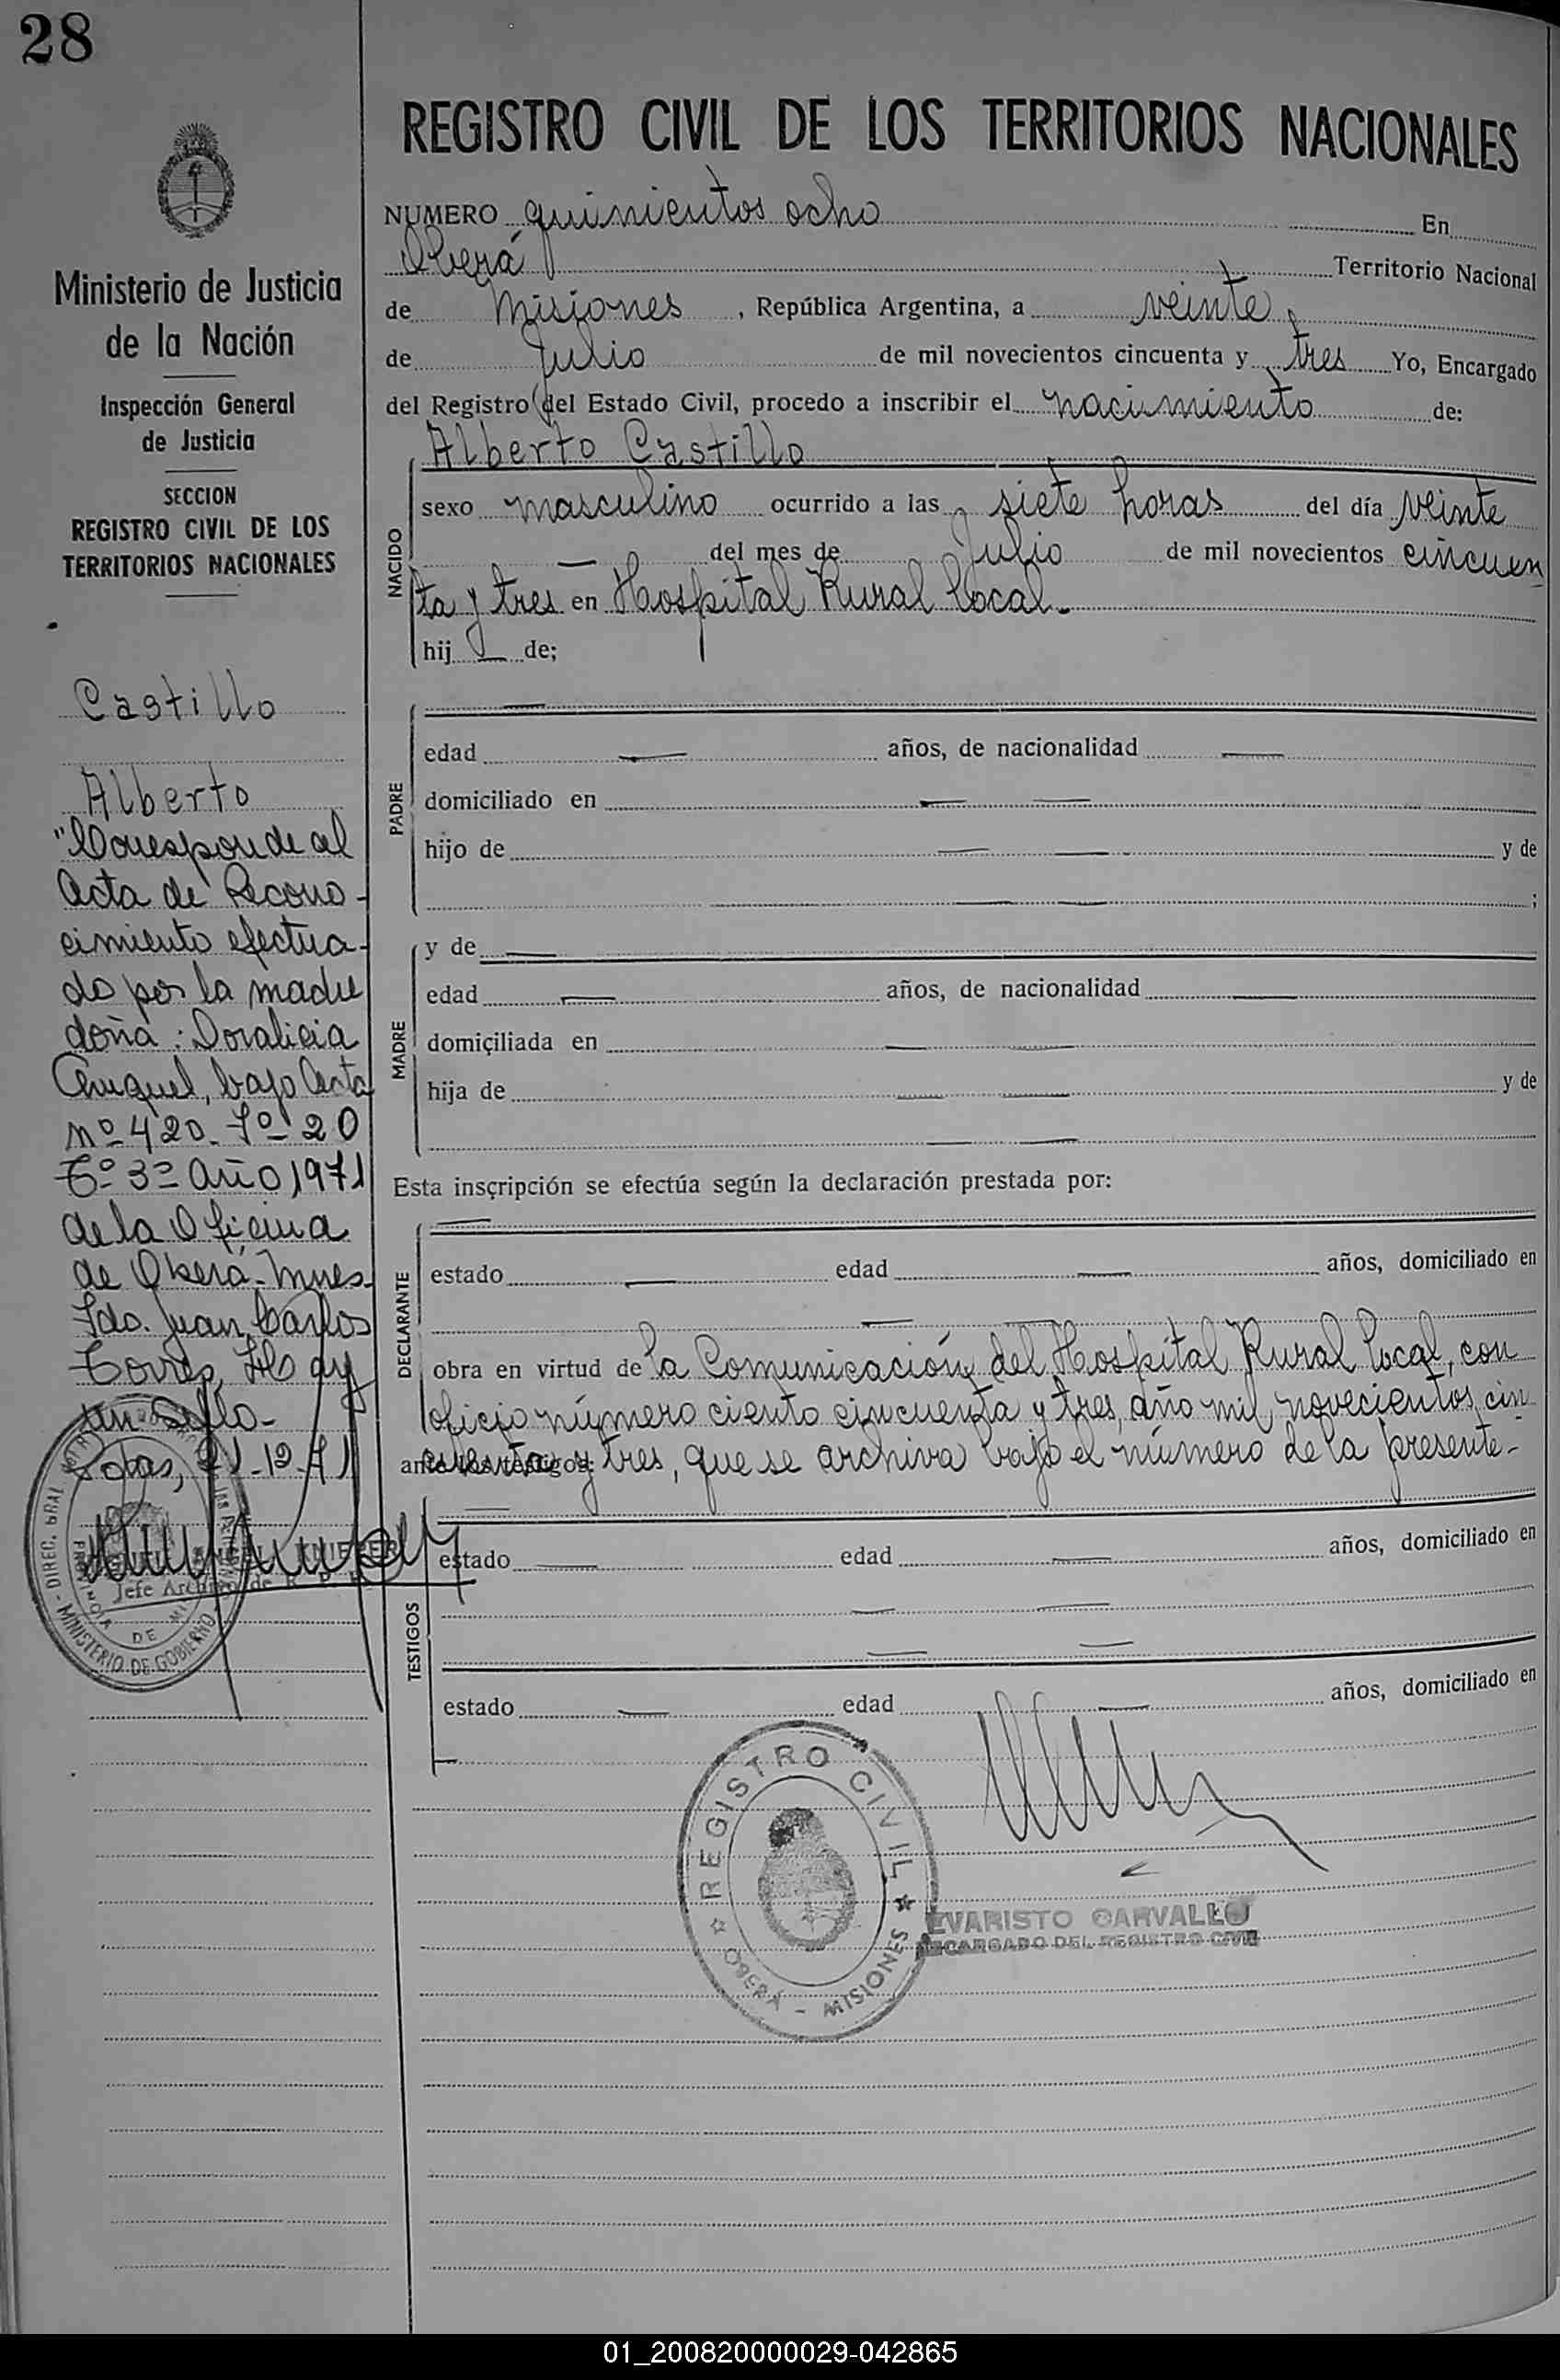 28
REGISTRO CIVIL DE LOS TERRITORIOS NACIONALES
Ministerio de Justicia
de la Nación
Inspección General
de Justicia
SECCION
REGISTRO CIVIL DE LOS
TERRITORIOS NACIONALES
Castillo
Alberto
"Corresponde al
Acta de Recono-
cimiento efectua-
do por la madre
doña: Doralicia
bajo Acta
nº 420. Fº 20
Tº 3º año 1971
de la Oficina
de Oberá-Mnes.
Fdo. Juan Carlos
Torres, Hay
un sello-
Pdas, 21-12-71
Jefe Archivo de R. P.
DIREC. GRAL
PROVINCIA DE
MINISTERIO DE GOBIERNO
NUMERO quinientos ocho En
Oberá Territorio Nacional
de Misiones, República Argentina, a veinte
de Julio de mil novecientos cincuenta y tres Yo, Encargado
del Registro del Estado Civil, procedo a inscribir el nacimiento de:
Alberto Castillo
NACIDO
sexo masculino ocurrido a las siete horas del día veinte
— del mes de Julio de mil novecientos cincuen
ta y tres en Hospital Rural local.-
hij — de;
PADRE
—
edad — años, de nacionalidad —
domiciliado en — —
hijo de — — y de
— — ;
MADRE
y de —
edad — años, de nacionalidad —
domiciliada en — —
hija de — — y de
— —
Esta inscripción se efectúa según la declaración prestada por:
DECLARANTE
—
estado — edad — años, domiciliado en
— —
obra en virtud de la Comunicación del Hospital Rural local, con
oficio número ciento cincuenta y tres, año mil novecientos cin
cuenta y tres, que se archiva bajo el número de la presente-
ante los testigos:
TESTIGOS
—
estado — edad — años, domiciliado en
— —
— —
estado — edad — años, domiciliado en
—
REGISTRO CIVIL
OBERÁ - MISIONES
EVARISTO CARVALLO
ENCARGADO DEL REGISTRO CIVIL
01_200820000029-042865